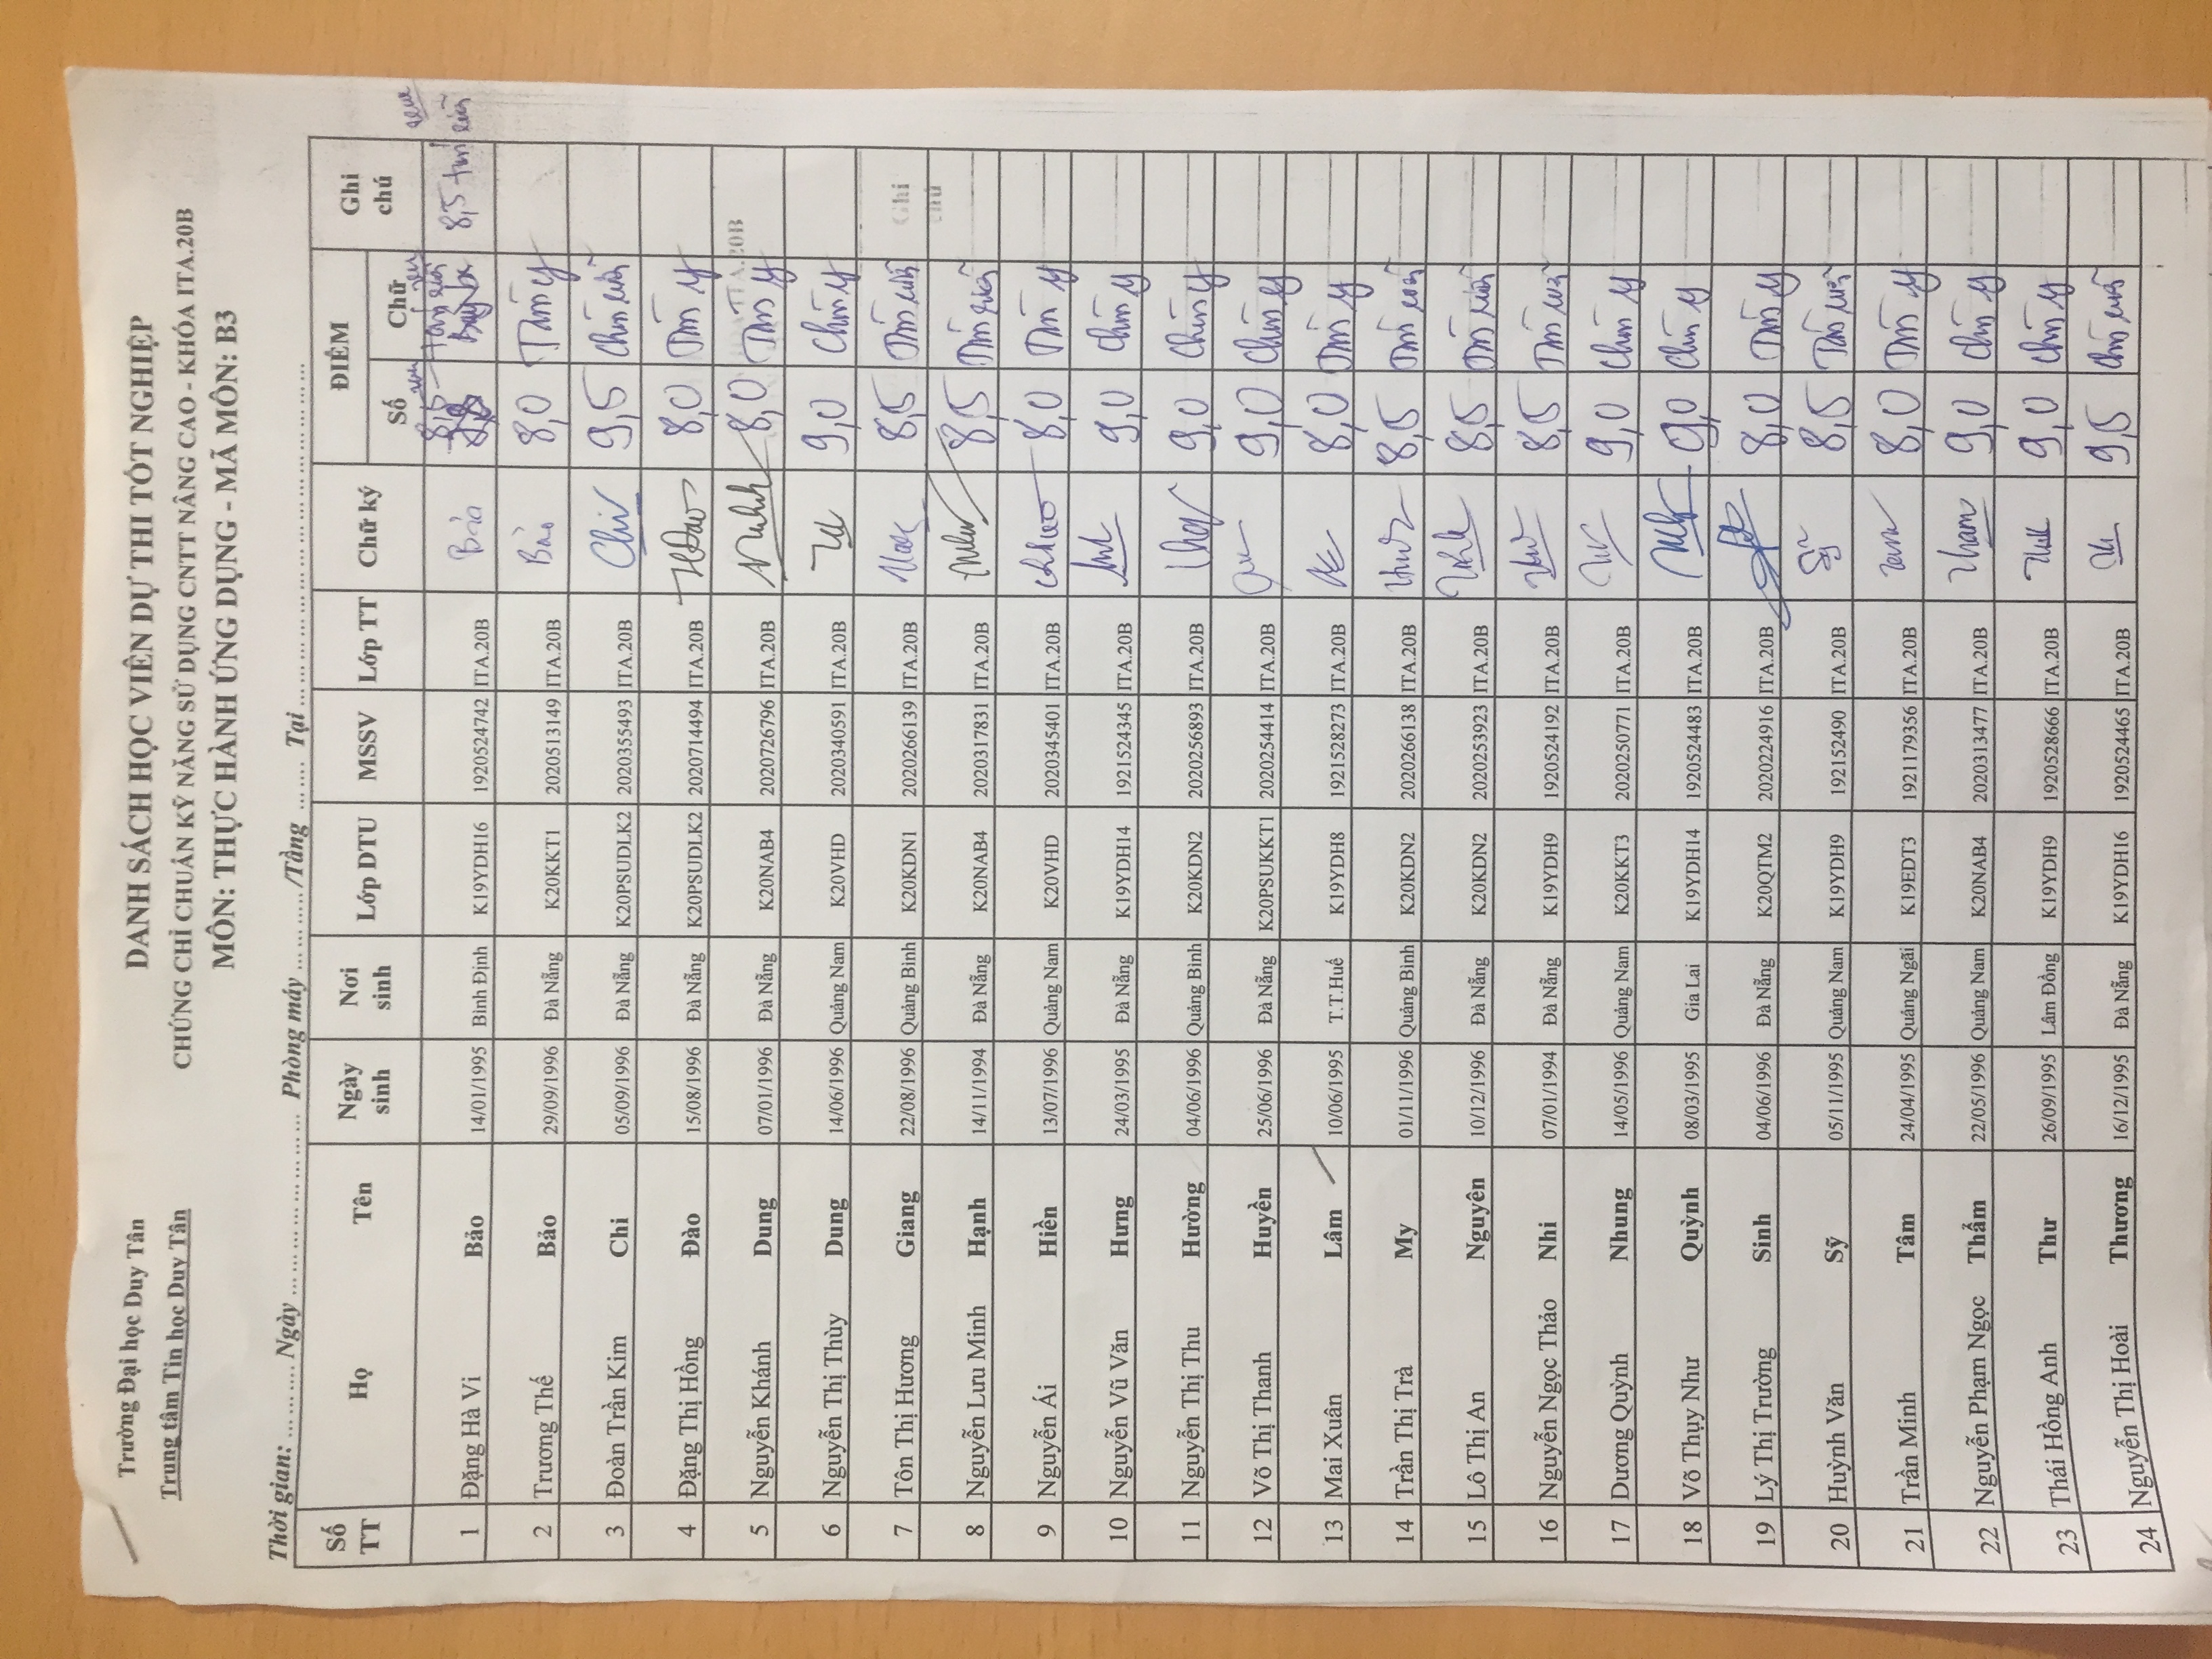 Trường Đại học Duy Tân
Trung tâm Tin học Duy Tân
DANH SÁCH HỌC VIÊN DỰ THI TỐT NGHIỆP
CHỨNG CHỈ CHUẨN KỸ NĂNG SỬ DỤNG CNTT NÂNG CAO - KHÓA ITA.20B
MÔN: THỰC HÀNH ỨNG DỤNG - MÃ MÔN: B3
Thời gian: ... ... ... Ngày ... ... ... ... ... ... Phòng máy ... ... ... /Tầng ... ... Tại ... ... ... ... ... ... ... ... ...
Số TT Họ Tên Ngày sinh Nơi sinh Lớp DTU MSSV Lớp TT Chữ ký ĐIỂM Số Chữ Ghi chú
1 Đặng Hà Vi Bảo 14/01/1995 Bình Định K19YDH16 1920524742 ITA.20B Bảo 8,5 Tám rưỡi 8,5 tám rưỡi
2 Trương Thế Bảo 29/09/1996 Đà Nẵng K20KKT1 2020513149 ITA.20B Bảo 8,0 Tám y
3 Đoàn Trần Kim Chi 05/09/1996 Đà Nẵng K20PSUDLK2 2020355493 ITA.20B Chi 9,5 Chín rưỡi
4 Đặng Thị Hồng Đào 15/08/1996 Đà Nẵng K20PSUDLK2 2020714494 ITA.20B HĐào 8,0 Tám y
5 Nguyễn Khánh Dung 07/01/1996 Đà Nẵng K20NAB4 2020726796 ITA.20B 8,0 Tám y
6 Nguyễn Thị Thùy Dung 14/06/1996 Quảng Nam K20VHD 2020340591 ITA.20B 9,0 Chín y
7 Tôn Thị Hương Giang 22/08/1996 Quảng Bình K20KDN1 2020266139 ITA.20B 8,5 Tám rưỡi
8 Nguyễn Lưu Minh Hạnh 14/11/1994 Đà Nẵng K20NAB4 2020317831 ITA.20B 8,5 Tám rưỡi
9 Nguyễn Ái Hiền 13/07/1996 Quảng Nam K20VHD 2020345401 ITA.20B 8,0 Tám y
10 Nguyễn Vũ Văn Hưng 24/03/1995 Đà Nẵng K19YDH14 1921524345 ITA.20B 9,0 Chín y
11 Nguyễn Thị Thu Hường 04/06/1996 Quảng Bình K20KDN2 2020256893 ITA.20B 9,0 Chín y
12 Võ Thị Thanh Huyền 25/06/1996 Đà Nẵng K20PSUKKT1 2020254414 ITA.20B 9,0 Chín y
13 Mai Xuân Lâm 10/06/1995 T.T.Huế K19YDH8 1921528273 ITA.20B 8,0 Tám y
14 Trần Thị Trà My 01/11/1996 Quảng Bình K20KDN2 2020266138 ITA.20B 8,5 Tám rưỡi
15 Lô Thị An Nguyên 10/12/1996 Đà Nẵng K20KDN2 2020253923 ITA.20B 8,5 Tám rưỡi
16 Nguyễn Ngọc Thảo Nhi 07/01/1994 Đà Nẵng K19YDH9 1920524192 ITA.20B 8,5 Tám rưỡi
17 Dương Quỳnh Nhung 14/05/1996 Quảng Nam K20KKT3 2020250771 ITA.20B 9,0 Chín y
18 Võ Thụy Như Quỳnh 08/03/1995 Gia Lai K19YDH14 1920524483 ITA.20B 9,0 Chín y
19 Lý Thị Trường Sinh 04/06/1996 Đà Nẵng K20QTM2 2020224916 ITA.20B 8,0 Tám y
20 Huỳnh Văn Sỹ 05/11/1995 Quảng Nam K19YDH9 192152490 ITA.20B Sỹ 8,5 Tám rưỡi
21 Trần Minh Tâm 24/04/1995 Quảng Ngãi K19EDT3 1921179356 ITA.20B 8,0 Tám y
22 Nguyễn Phạm Ngọc Thẩm 22/05/1996 Quảng Nam K20NAB4 2020313477 ITA.20B Tham 9,0 Chín y
23 Thái Hồng Anh Thư 26/09/1995 Lâm Đồng K19YDH9 1920528666 ITA.20B 9,0 Chín y
24 Nguyễn Thị Hoài Thương 16/12/1995 Đà Nẵng K19YDH16 1920524465 ITA.20B 9,5 Chín rưỡi